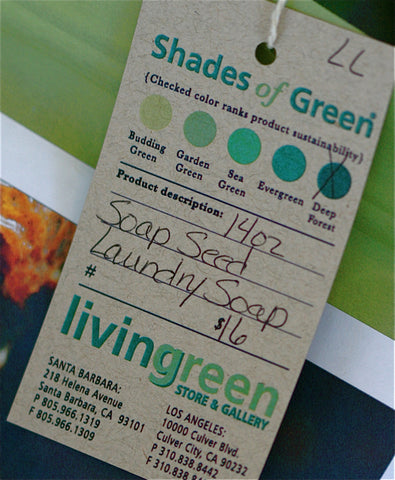 LL
Shades of Green®
{Checked color ranks product sustainability}
Budding Green
Garden Green
Sea Green
Evergreen
Deep Forest
Product description: 14oz
Soap Seed
Laundry Soap
# $16
livingreen
STORE & GALLERY
SANTA BARBARA:
218 Helena Avenue
Santa Barbara, CA 93101
P 805.966.1319
F 805.966.1309
LOS ANGELES:
10000 Culver Blvd.
Culver City, CA 90232
P 310.838.8442
F 310.838.